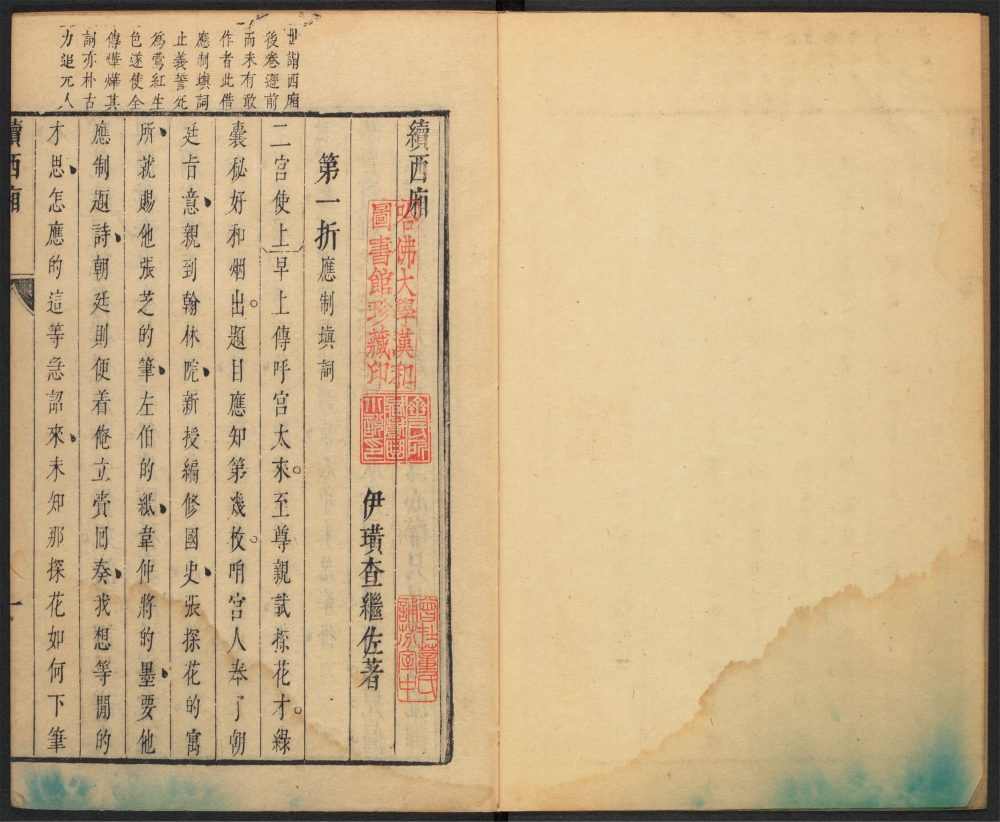 世謂西廂
後卷遜前
而未有敢
作者此借
應制填詞
止義誓死
為鶯紅生
色遂使全
傳㷸㷸其
詞亦朴古
力追元人
續西廂
哈佛大學漢和
圖書館珍藏印
伊璜查繼佐著
第一折 應制填詞
二宮使上早上傳呼宮太來。至尊親試探花才。綠
囊秘好和烟出。題目應知第幾枚。咱宮人奉了朝
廷旨意、親到翰林院、新授編修國史、張探花的寓
所、就賜他張芝的筆、左伯的紙、韋仲將的墨、要他
應制題詩、朝廷則便着俺立賫囘奏、我想等閒的
才思、怎應的這等急詔來、未知那探花如何下筆
續西廂
一